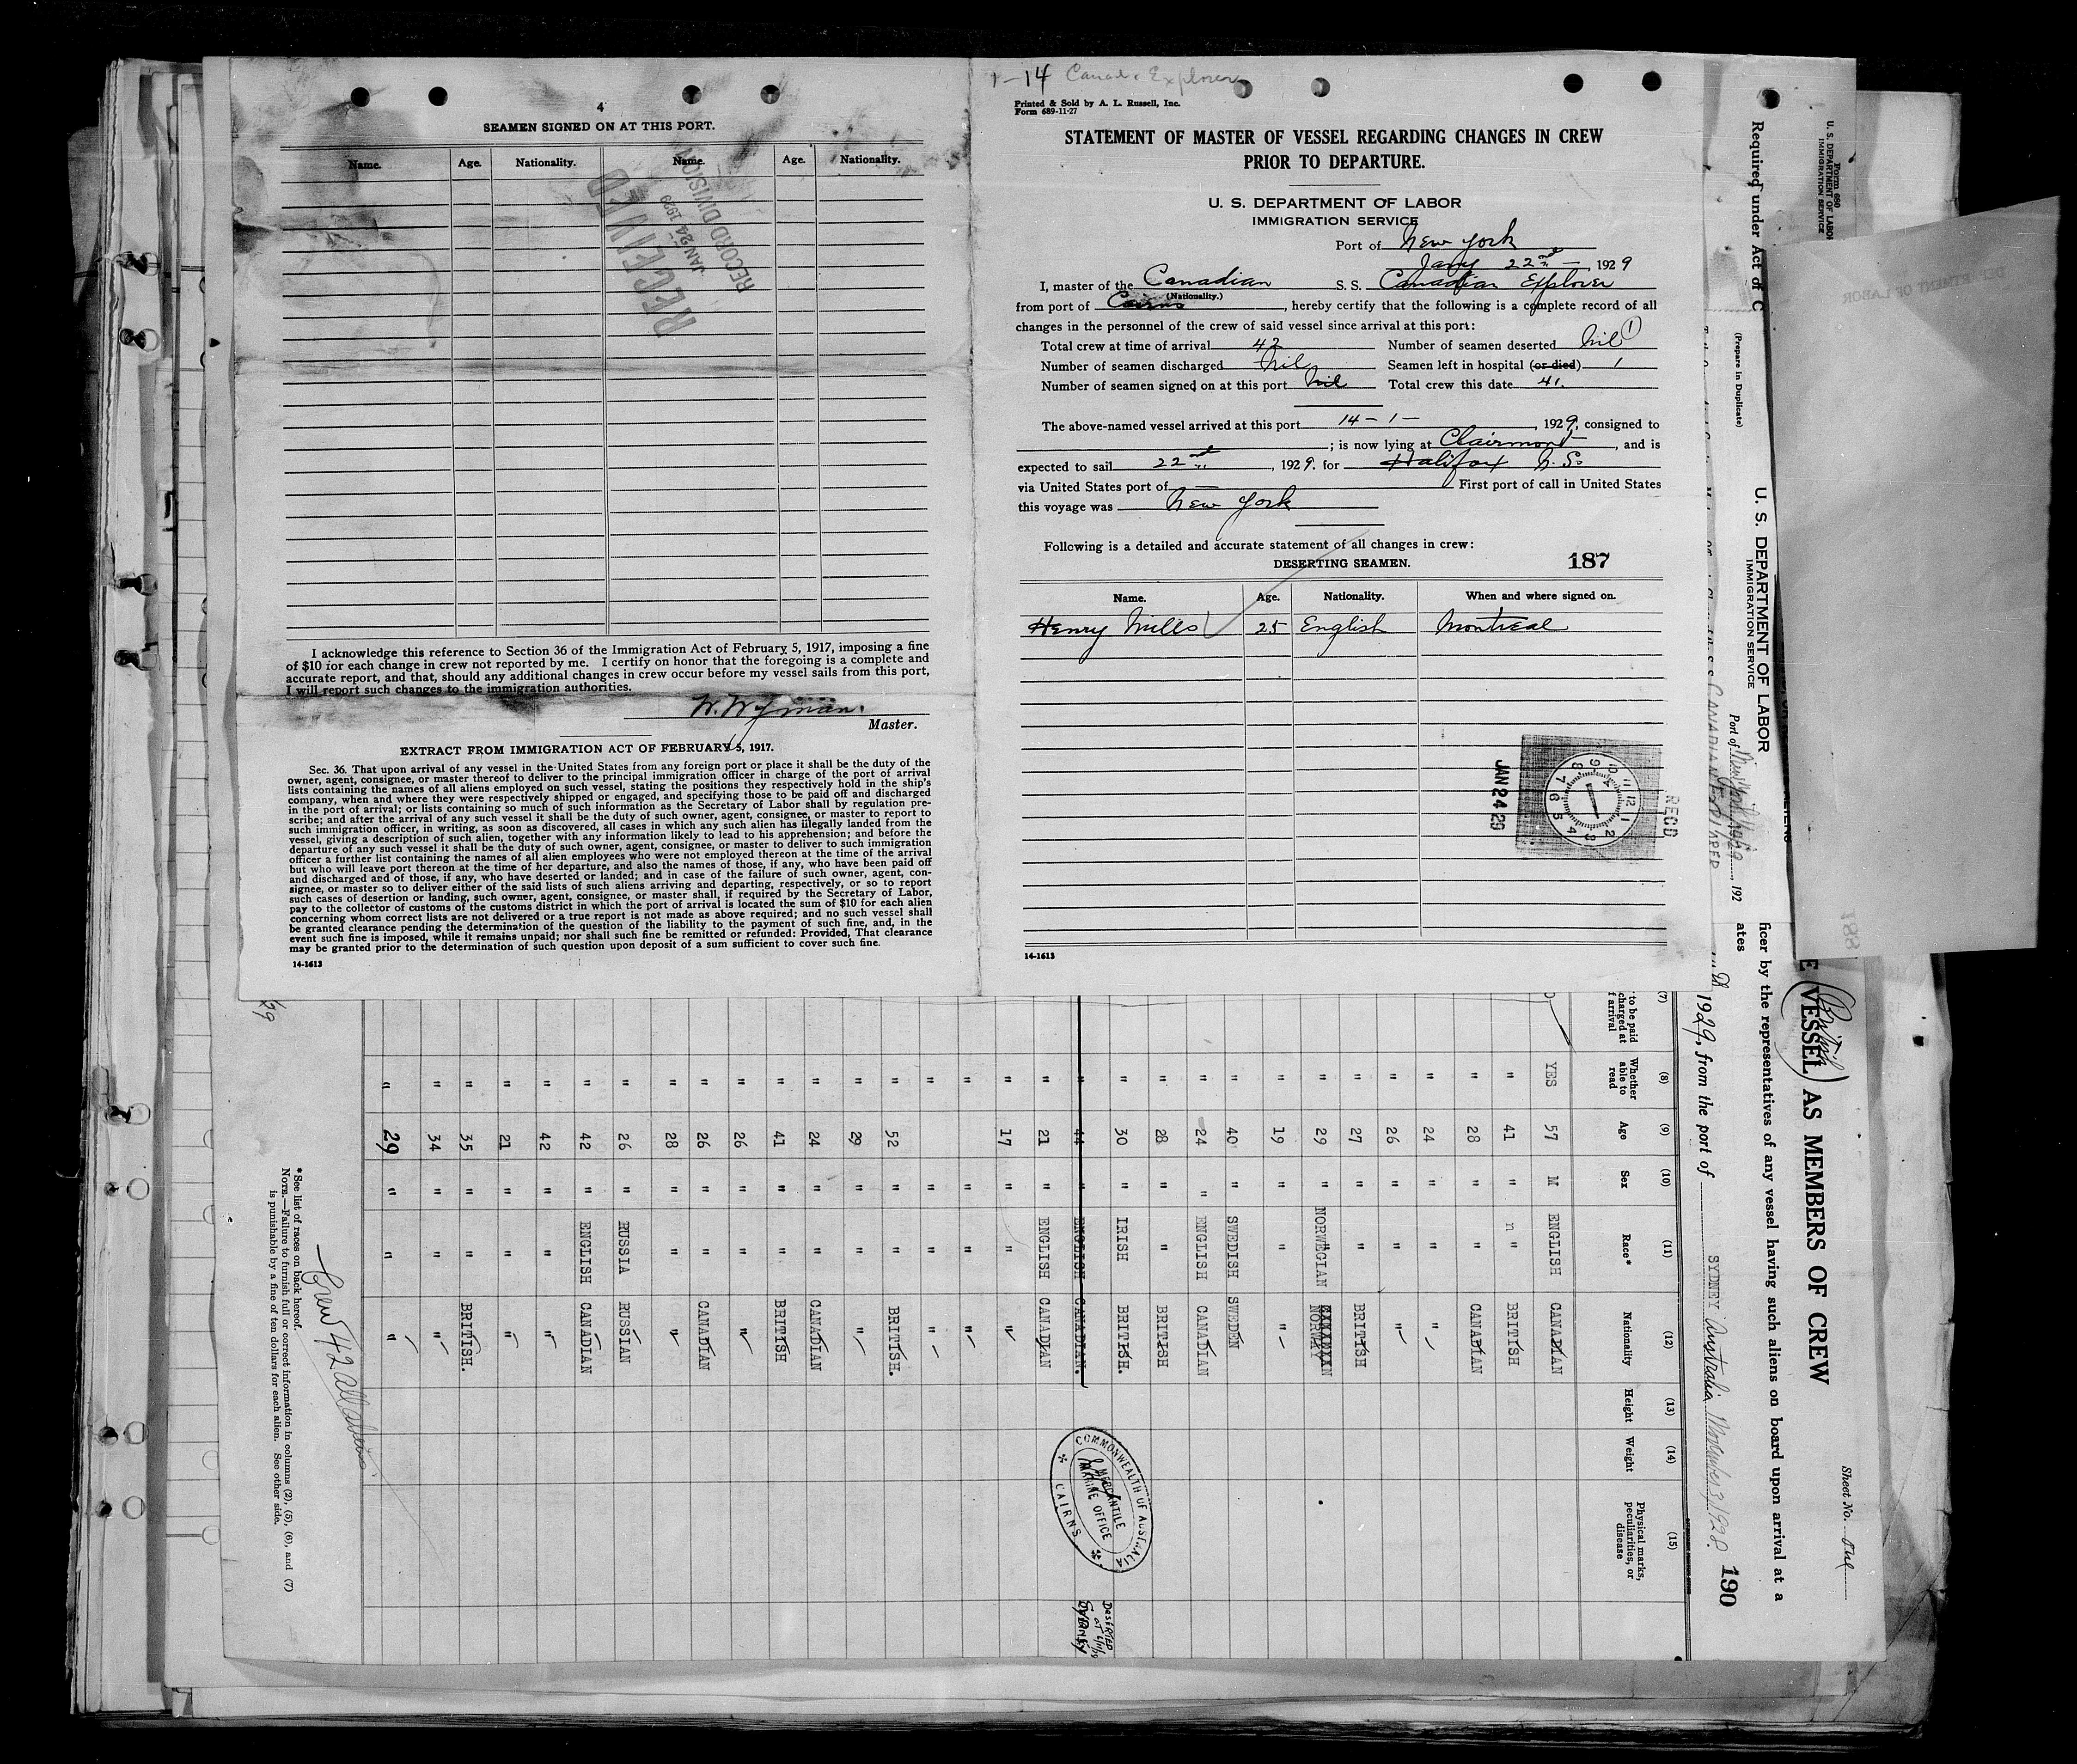 4
SEAMEN SIGNED ON AT THIS PORT.
Name. Age. Nationality. Name. Age. Nationality.
RECEIVED
JAN 24 1929
RECORD DIVISION
I acknowledge this reference to Section 36 of the Immigration Act of February 5, 1917, imposing a fine
of $10 for each change in crew not reported by me. I certify on honor that the foregoing is a complete and
accurate report, and that, should any additional changes in crew occur before my vessel sails from this port,
I will report such changes to the immigration authorities.
W. Wyman.
Master.
EXTRACT FROM IMMIGRATION ACT OF FEBRUARY 5, 1917.
Sec. 36. That upon arrival of any vessel in the United States from any foreign port or place it shall be the duty of the
owner, agent, consignee, or master thereof to deliver to the principal immigration officer in charge of the port of arrival
lists containing the names of all aliens employed on such vessel, stating the positions they respectively hold in the ship's
company, when and where they were respectively shipped or engaged, and specifying those to be paid off and discharged
in the port of arrival; or lists containing so much of such information as the Secretary of Labor shall by regulation pre-
scribe; and after the arrival of any such vessel it shall be the duty of such owner, agent, consignee, or master to report to
such immigration officer, in writing, as soon as discovered, all cases in which any such alien has illegally landed from the
vessel, giving a description of such alien, together with any information likely to lead to his apprehension; and before the
departure of any such vessel it shall be the duty of such owner, agent, consignee, or master to deliver to such immigration
officer a further list containing the names of all alien employees who were not employed thereon at the time of the arrival
but who will leave port thereon at the time of her departure, and also the names of those, if any, who have been paid off
and discharged and of those, if any, who have deserted or landed; and in case of the failure of such owner, agent, con-
signee, or master so to deliver either of the said lists of such aliens arriving and departing, respectively, or so to report
such cases of desertion or landing, such owner, agent, consignee, or master shall, if required by the Secretary of Labor,
pay to the collector of customs of the customs district in which the port of arrival is located the sum of $10 for each alien
concerning whom correct lists are not delivered or a true report is not made as above required; and no such vessel shall
be granted clearance pending the determination of the question of the liability to the payment of such fine, and, in the
event such fine is imposed, while it remains unpaid; nor shall such fine be remitted or refunded: Provided, That clearance
may be granted prior to the determination of such question upon deposit of a sum sufficient to cover such fine.
14-1613
1-14 Canad. Explorer
Printed & Sold by A. L. Russell, Inc.
Form 689-11-27
STATEMENT OF MASTER OF VESSEL REGARDING CHANGES IN CREW
PRIOR TO DEPARTURE.
U. S. DEPARTMENT OF LABOR
IMMIGRATION SERVICE
Port of New York
Jany 22nd, 1929
I, master of the Canadian S. S. Canadian Explorer
(Nationality.)
from port of Cairns, hereby certify that the following is a complete record of all
changes in the personnel of the crew of said vessel since arrival at this port:
Total crew at time of arrival 42 Number of seamen deserted Nil 1
Number of seamen discharged Nil Seamen left in hospital (or died) 1
Number of seamen signed on at this port Nil Total crew this date 41.
The above-named vessel arrived at this port 14-1-, 1929, consigned to
; is now lying at Clairmont, and is
expected to sail 22nd, 1929. for Halifax N.S.
via United States port of — First port of call in United States
this voyage was New York
Following is a detailed and accurate statement of all changes in crew:
DESERTING SEAMEN. 187
Name. Age. Nationality. When and where signed on.
Henry Mills 25 English Montreal
JAN 24 29
12 1 2 3 4 5 6 7 8 9 10 11
RECD
14-1613
Form 680
U. S. DEPARTMENT OF LABOR
IMMIGRATION SERVICE
Required under Act of C
(Prepare in Duplicate)
U. S. DEPARTMENT OF LABOR
IMMIGRATION SERVICE
Port of New York 192
CANADIAN EXPLORER
VESSEL AS MEMBERS OF CREW
British
Sheet No. One
ficer by the representatives of any vessel having such aliens on board upon arrival at a
ates
1929, from the port of SYDNEY Australia November 3/1928. 190
(7) (8) (9) (10) (11) (12) (13) (14) (15)
to be paid
charged at
f arrival
Whether able to read
Age
Sex
Race*
Nationality
Height
Weight
Physical marks, peculiarities, or disease
YES 57 M ENGLISH CANADIAN
" 41 " " BRITISH
" 28 " " CANADIAN
" 24 " " "
" 26 " " "
" 27 " " BRITISH
" 29 " NORWEGIAN NORWAY
" 19 " " "
" 40 " SWEDISH SWEDEN
" 24 " ENGLISH CANADIAN
" 28 " " BRITISH
" 30 " IRISH BRITISH.
" 44 " ENGLISH CANADIAN. DESERTED AT SYDNEY
" 21 " ENGLISH CANADIAN
" 17 " " "
" " " "
" " " "
" 52 " " BRITISH.
" 29 " " "
" 24 " " CANADIAN
" 41 " " BRITISH
" 26 " " "
" 26 " " CANADIAN
" 28 " " "
" 26 " RUSSIA RUSSIAN
" 42 " ENGLISH CANADIAN
" 42 " " "
" 21 " " "
" 35 " " BRITISH.
" 34 " " "
" 29 " " "
COMMONWEALTH OF AUSTRALIA
MERCANTILE
MARINE OFFICE
CAIRNS
Crew 42 all aliens
*See list of races on back hereof.
NOTE.—Failure to furnish full or correct information in columns (2), (5), (6), and (7)
is punishable by a fine of ten dollars for each alien. See other side.